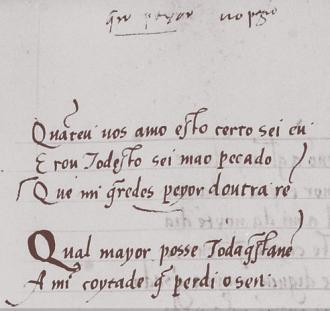 qr̄ peyor uo pgo
Quāteu uos amo esto certo sei eu
E rou Todesto sei mao pecado
Que mi q̄redes peyor doutra re
Qual mayor posse Toda q̄stane
A mi coytade q̄ perdi o sen